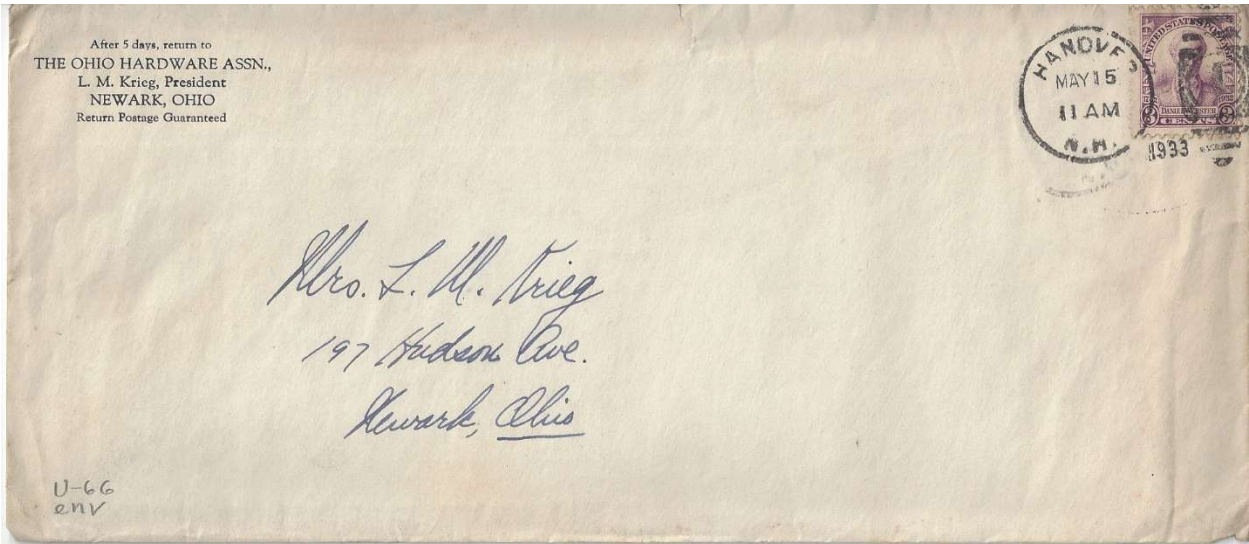 After 5 days, return to
THE OHIO HARDWARE ASSN.,
L. M. Krieg, President
NEWARK, OHIO
Return Postage Guaranteed
HANOVER
MAY 15
11 AM
N.H.
1933
UNITED STATES POSTAGE
DANIEL WEBSTER
3 CENTS 3
Mrs. L. M. Krieg
197 Hudson Ave.
Newark, Ohio
U-66
env